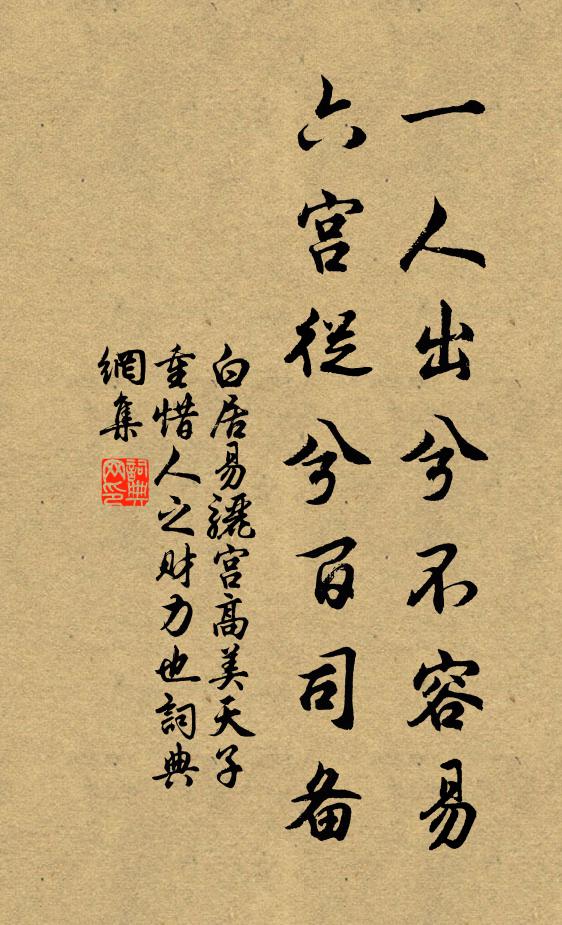 一人出兮不容易
六宫從兮百司备
白居易驪宫高美天子
重惜人之财力也詞典
網集
詞典网印